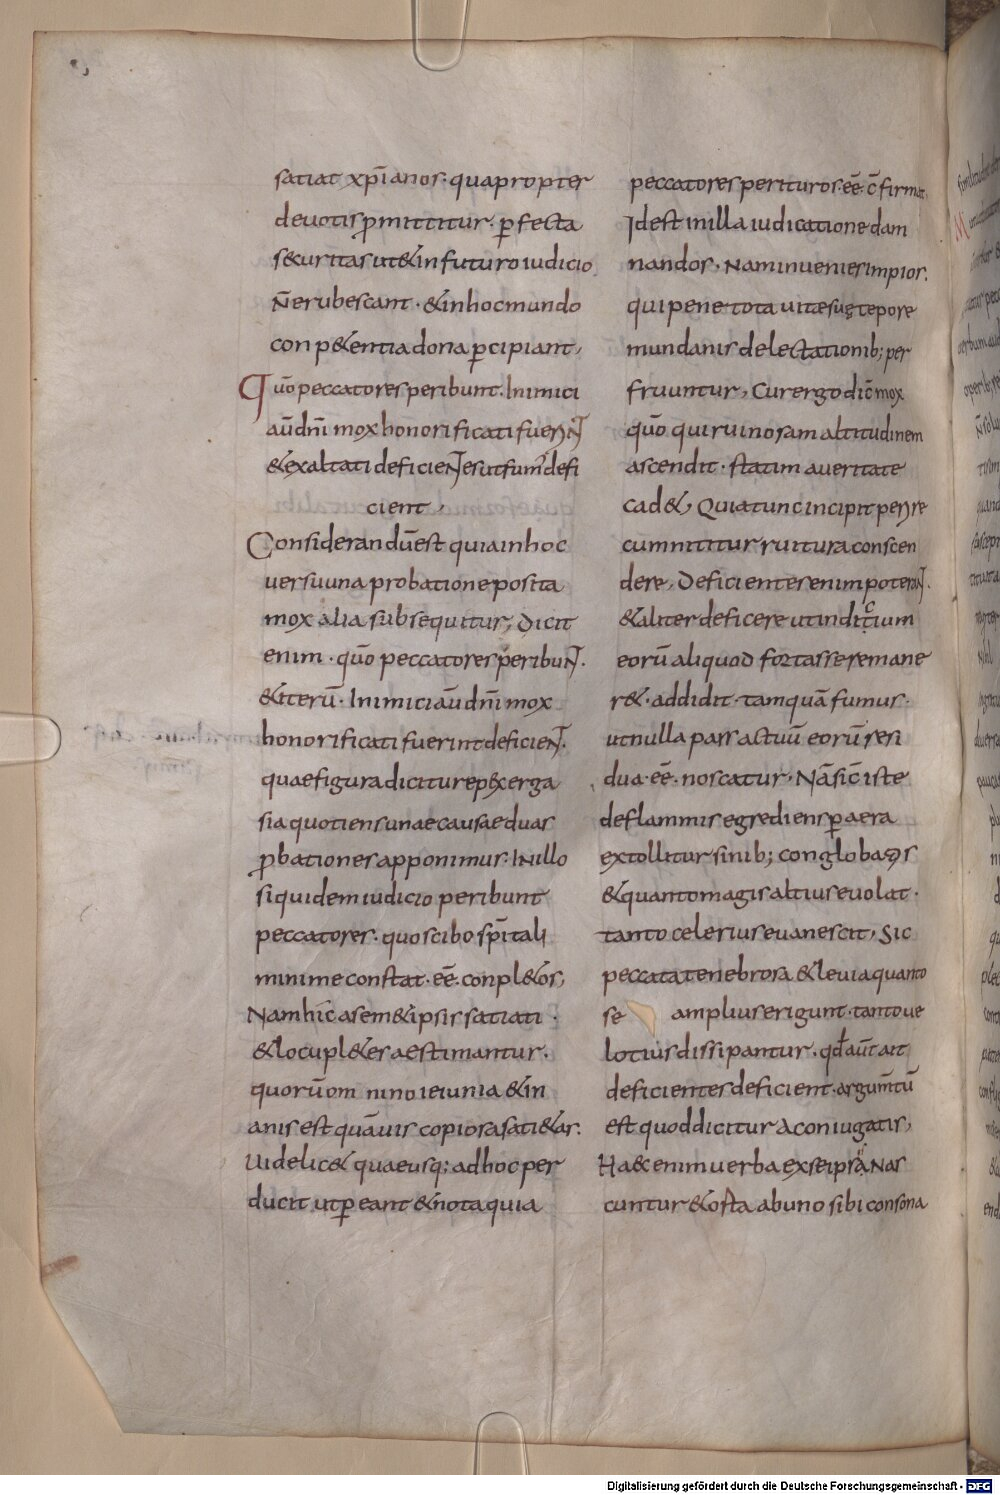 satiat xp̄ianos· quapropter
deuotis ꝓmittitur· ꝑfecta
securitas ut & in futuro iudicio
n̄ erubescant· & in hoc mundo
conp&entia dona ꝑcipiant,
Quō peccatores peribunt. Inimici
aūdn̄i mox honorificati fuerint
& exaltati deficientes ut fum' defi
cient,
Considerandū est quia in hoc
uersu una probatione posita
mox alia subsequitur, Dicit
enim· quō peccatores peribunt.
& iterū· Inimici aūdn̄i mox
honorificati fuerint deficient.
quae figura dicitur ep&xerga
sia quotiens unae causae duas
ꝓbationes apponimus· In illo
siquidem iudicio peribunt
peccatores· quos cibo sp̄itali
minime constat· eē· conpl&os,
Nam hīc a sem&ipsis satiati·
& locupl&es aestimantur·
quorū omnino ieiunia & in
anis est quāuis copiosa sati&as·
Uidelic& quae usq; ad hoc per
ducit ut ꝑeant & nota quia
peccatores perituros· eē· c̄firmat
Idest in illa iudicatione dam
nandos, Nam inuenies impios·
qui pene tota uitae suę tēpore
mundanis delectationib; per
fruuntur, Cur ergo dic̄ mox
quō qui ruinosam altitudinem
ascendit· statim a ueritate
cad&, Quia tunc incipit perire
cum nititur ruitura conscen
dere, Deficientes enim poterant·
& aliter deficere ut indicium
eorū aliquod fortasse remane
r&· addidit· tamquā fumus·
ut nulla pars actuū eorū resi
dua· eē· noscatur· Nā sic iste
de flammis egrediens ꝑ aera
extollitur sinib; conglobatis
& quanto magis altius euolat·
tanto celerius euanescit, Sic
peccata tenebrosa & leuia quanto
se amplius erigunt· tanto ue
locius dissipantur· qd̄ aūt ait
deficientes deficient· argumtū
est quod dicitur a coniugatis,
Haec enim uerba ex se ipsa nas
cuntur & osta ab uno sibi consona
Digitalisierung gefördert durch die Deutsche Forschungsgemeinschaft - DFG